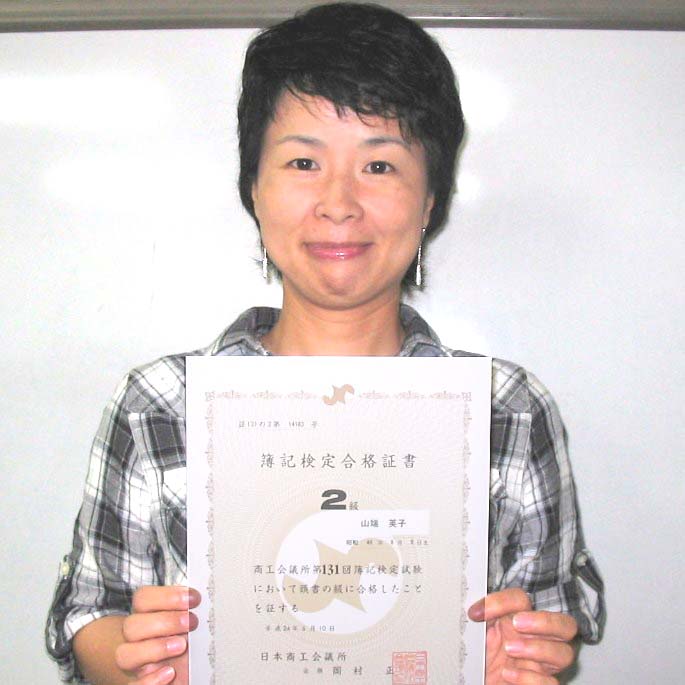 証131の2第 14183 号
簿記検定合格証書
2級
山端 英子
商工会議所第131回簿記検定試験
において頭書の級に合格したこと
を証する
平成24年6月10日
日本商工会議所
会頭 岡村 正